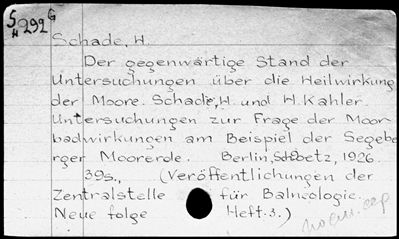 S H 292 G
Schade, H.
Der gegenwärtige Stand der
Untersuchungen über die Heilwirkung
der Moore. Schade, H. und H. Kahler.
Untersuchungen zur Frage der Moor-
badwirkungen am Beispiel der Segebe
rger Moorerde. Berlin, Schoetz, 1926.
39s., (Veröffentlichungen der
Zentralstelle für Balneologie.
Neue folge Heft.3.)